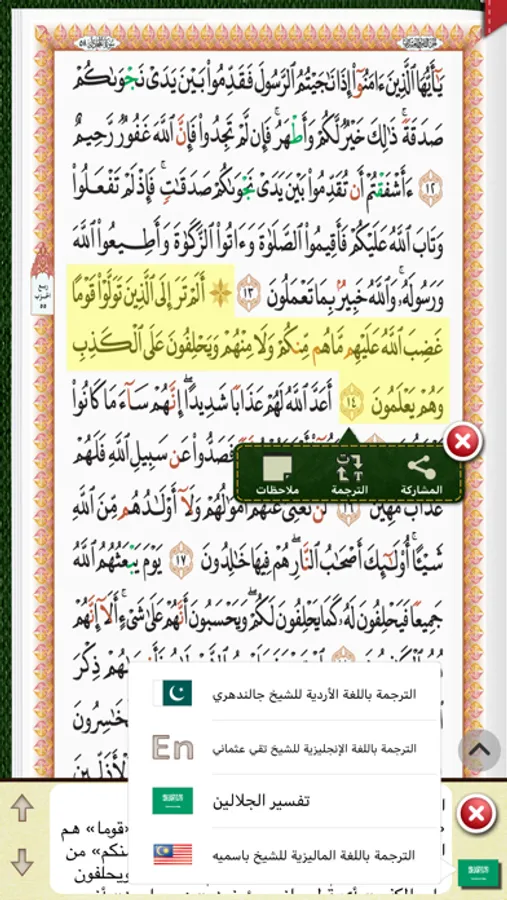 سورة المجادلة ٥٨
يَٰٓأَيُّهَا ٱلَّذِينَ ءَامَنُوٓا۟ إِذَا نَٰجَيْتُمُ ٱلرَّسُولَ فَقَدِّمُوا۟ بَيْنَ يَدَىْ نَجْوَىٰكُمْ
صَدَقَةً ۚ ذَٰلِكَ خَيْرٌ لَّكُمْ وَأَطْهَرُ ۚ فَإِن لَّمْ تَجِدُوا۟ فَإِنَّ ٱللَّهَ غَفُورٌ رَّحِيمٌ
١٢ ءَأَشْفَقْتُمْ أَن تُقَدِّمُوا۟ بَيْنَ يَدَىْ نَجْوَىٰكُمْ صَدَقَٰتٍ ۚ فَإِذْ لَمْ تَفْعَلُوا۟
وَتَابَ ٱللَّهُ عَلَيْكُمْ فَأَقِيمُوا۟ ٱلصَّلَوٰةَ وَءَاتُوا۟ ٱلزَّكَوٰةَ وَأَطِيعُوا۟ ٱللَّهَ
وَرَسُولَهُۥ ۚ وَٱللَّهُ خَبِيرٌۢ بِمَا تَعْمَلُونَ ١٣ ۞ أَلَمْ تَرَ إِلَى ٱلَّذِينَ تَوَلَّوْا۟ قَوْمًا
ربع
الحزب
٥٥
غَضِبَ ٱللَّهُ عَلَيْهِم مَّا هُم مِّنكُمْ وَلَا مِنْهُمْ وَيَحْلِفُونَ عَلَى ٱلْكَذِبِ
وَهُمْ يَعْلَمُونَ ١٤ أَعَدَّ ٱللَّهُ لَهُمْ عَذَابًا شَدِيدًا ۖ إِنَّهُمْ سَآءَ مَا كَانُوا۟
فَصَدُّوا۟ عَن سَبِيلِ ٱللَّهِ فَلَهُمْ
المشاركة
الترجمة
ملاحظات
عَذَابٌ مُّهِينٌ ١٦ لَّن تُغْنِىَ عَنْهُمْ أَمْوَٰلُهُمْ وَلَآ أَوْلَٰدُهُم مِّنَ ٱللَّهِ
شَيْـًٔا ۚ أُو۟لَٰٓئِكَ أَصْحَٰبُ ٱلنَّارِ ۖ هُمْ فِيهَا خَٰلِدُونَ ١٧ يَوْمَ يَبْعَثُهُمُ ٱللَّهُ
جَمِيعًا فَيَحْلِفُونَ لَهُۥ كَمَا يَحْلِفُونَ لَكُمْ ۖ وَيَحْسَبُونَ أَنَّهُمْ عَلَىٰ شَىْءٍ ۚ أَلَآ إِنَّهُمْ
ذِكْرَ
الترجمة باللغة الأردية للشيخ جالندهري
En الترجمة باللغة الإنجليزية للشيخ تقي عثماني
تفسير الجلالين
الترجمة باللغة الماليزية للشيخ باسميه
«قوما» هم
من
ويحلفون